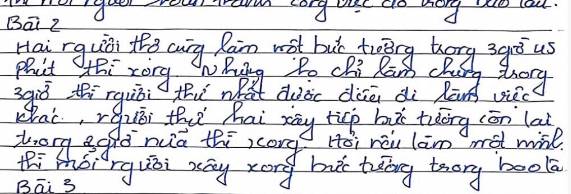 thì mỗi người hoàn thành công việc đó trong bao lâu.
Bài 2
Hai người thợ cùng làm một bức tường trong 3giờ 45
phút thì xong. Nhưng họ chỉ làm chung trong
3giờ thì người thứ nhất được điều đi làm việc
khác, người thứ hai xây tiếp bức tường còn lại
trong 2giờ nữa thì xong. Hỏi nếu làm một mình
thì mỗi người xây xong bức tường trong bao lâ
Bài 3